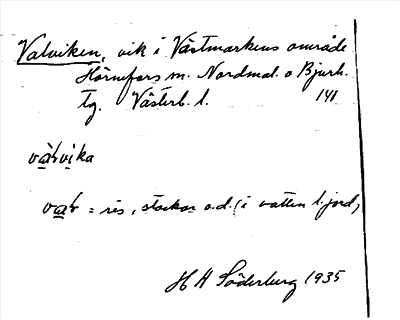 Valviken, vik i Västmarkens område
Hörnefors m. Nordmal. o Bjurh.
tg. Västerb. l. 141
vàɫvika
vaɫ = ris, stockar o.d. (i vatten l. jord)
H A Söderberg 1935